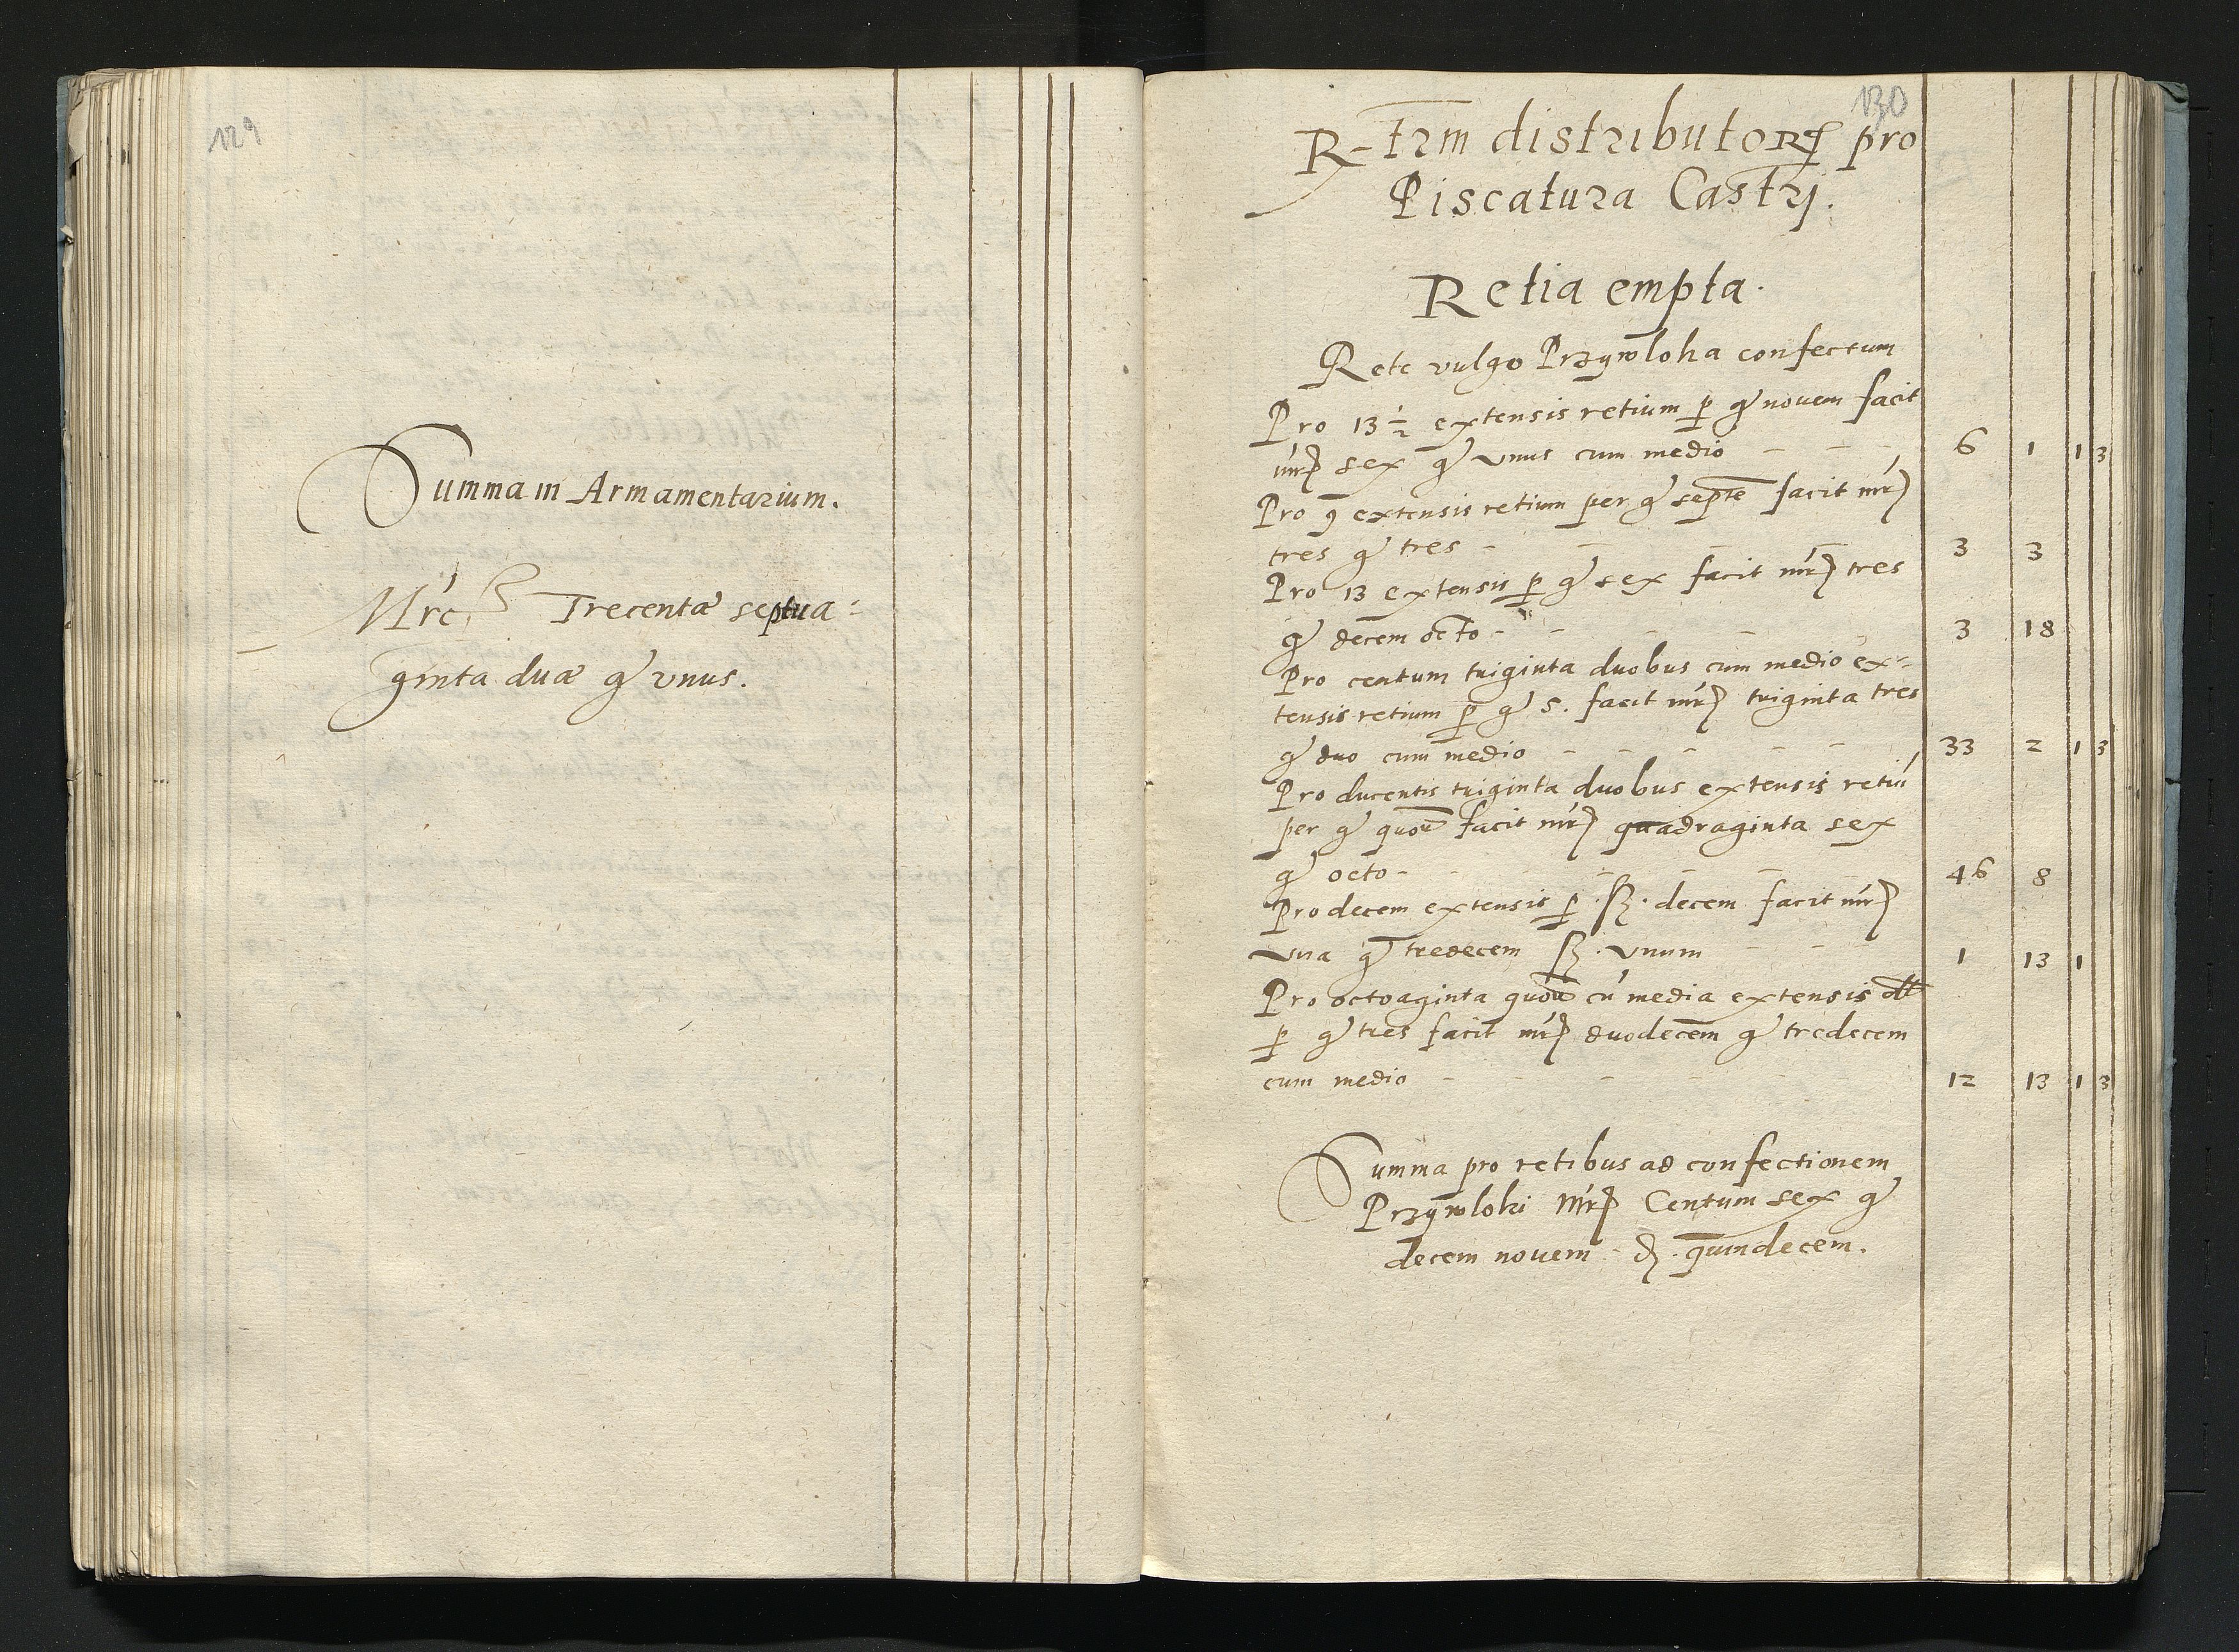 129
Summa in Armamentarium.
Mrc. Trecentæ septua=
ginta duæ gr vnus.
130
R-trm distributorum pro
Piscatura Castrj.
Retia empta.
Rete vulgo Przywloka confectum
Pro 13 1/2 extensis retium p gr nouem facit
mr sex gr vnus cum medio - - - 6 1 1 3
Pro 9 extensis retium per gr septē facit mr
tres gr tres - - - 3 3
Pro 13 extensis p gr sex facit mr tres
gr decem octo - - - - 3 18
Pro centum triginta duobus cum medio ex=
tensis retium p gr 5. facit mr triginta tres
gr duo cum medio - - - - - 33 2 1 3
Pro ducentis triginta duobus extensis retiū
per gr quōr facit mr quadraginta sex
gr octo - - - - - - 46 8
Pro decem extensis p sz. decem facit mr
vna gr tredecem sz. vnum - - - 1 13 1
Pro octoaginta quōr cū media extensis
p gr tres facit mr duodecem gr tredecem
cum medio - - - - - 12 13 1 3
Summa pro retibus ad confectionem
Przywloki Mr Centum sex gr
decem nouem - d. quindecem.